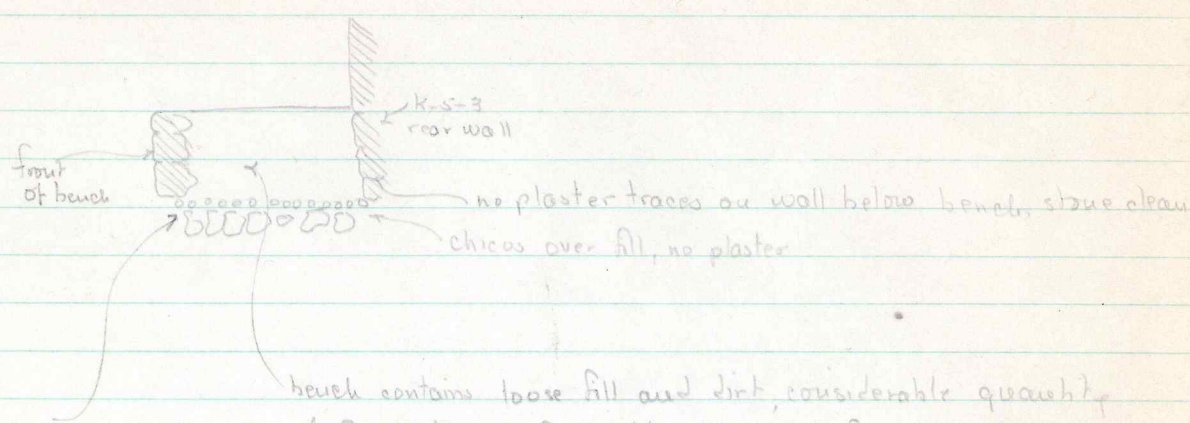 K-5-3
rear wall
front
of bench
no plaster traces on wall below bench, stone clean
chicos over fill, no plaster
bench contains loose fill and dirt, considerable quantity